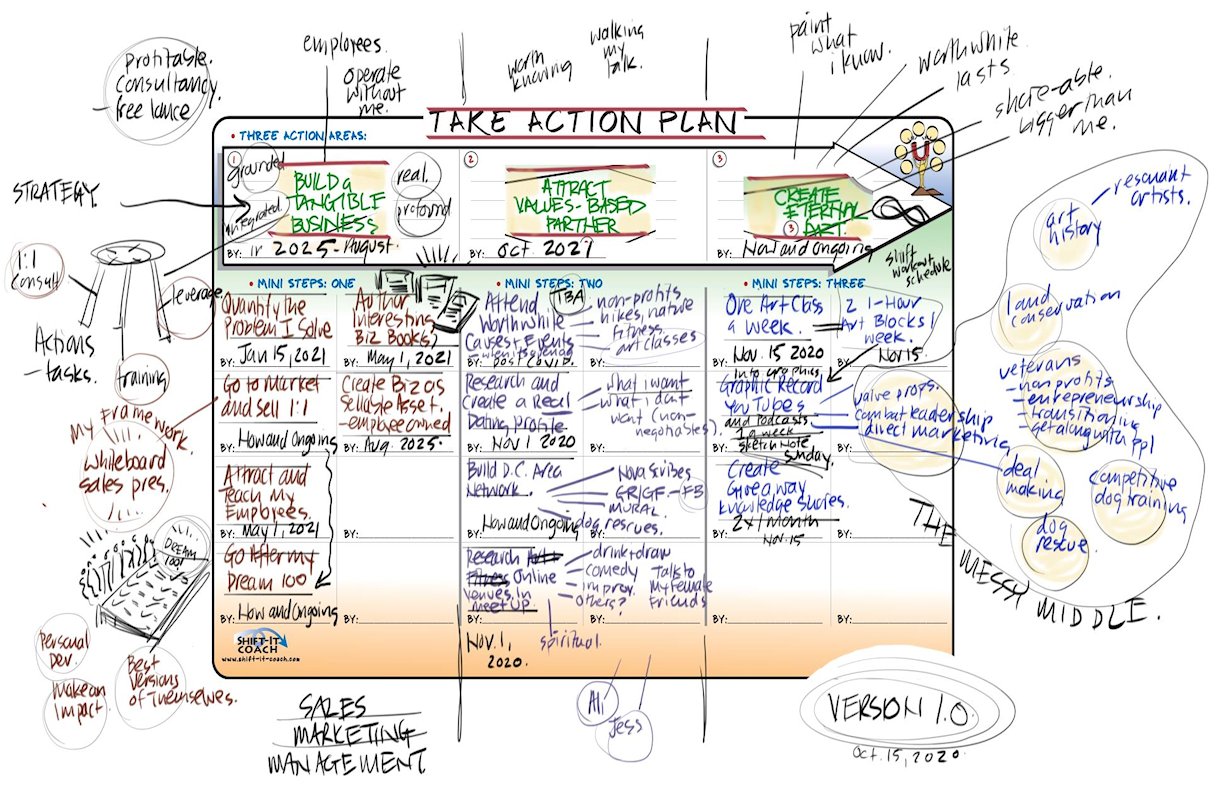 Profitable.
Consultancy.
- free lance
employees.
operate
without
me.
worth
knowing
walking
my
talk.
paint
what
i know.
worthwhite
lasts
share-able.
bigger than
me.
TAKE ACTION PLAN
• THREE ACTION AREAS:
1
grounded
integrated
BUILD a
TANGIBLE
BUSINESS
real.
profound
BY: 2025 - August.
2
ATTRACT
VALUES-BASED
PARTNER
BY: Oct. 2021
3
CREATE
ETERNAL
ART.
3
BY: Now and Ongoing
STRATEGY
1:1
Consult
leverage
training
Actions
- tasks.
shift
workout
schedule
• MINI STEPS: ONE
Quantify the
Problem I Solve
BY: Jan 15, 2021
Author
Interesting
Biz Books,
BY: May 1, 2021
Go to Market
and sell 1:1
BY: Now and Ongoing
Create Biz as
Sellable Asset.
- employee owned
BY: Aug. 2025.
Attract and
Teach My
Employees.
BY: May 1, 2021
BY:
Go After my
Dream 100
BY: Now and Ongoing
BY:
• MINI STEPS: TWO
TBA
Attend
Worthwhite
Causes + Events
BY: post covid.
non-profits
hikes, nature
fitness.
art classes
BY:
Research and
Create a Real
Dating Profile
BY: Nov 1 2020
what i want
what i don't
want (non-
negotiables).
BY:
Build D.C. Area
Network.
BY: Now and Ongoing
Nova Scribes
GR/GF - FB
MURAL
dog rescues.
BY:
Research Art +
Fitness Online
venues in
meet UP
BY:
Nov. 1,
2020.
drink + draw
comedy
improv.
others?
spiritual.
Talk to
My Female
Friends
BY:
Ali
Jess
• MINI STEPS: THREE
One Art Class
a week.
BY: Nov. 15 2020
2 1-Hour
Art Blocks /
week.
BY: Nov 15
Info graphics,
Graphic Record
YouTubes
and Podcasts
1 a week
BY: sketch Note
Sunday.
BY:
Create
Give away
Knowledge Shares.
2x / month
BY: Nov. 15
BY:
BY:
BY:
value props.
combat leadership
direct marketing
resonant
artists.
art
history
land
conservation
veterans
- nonprofits
- entrepreneurship
- transitioning
- get along with ppl
deal
making
competitive
dog training
dog
rescue.
THE MESSY MIDDLE.
My Framework.
whiteboard
sales pres.
DREAM
100!
personal
Dev.
Make an
Impact
Best
Versions
of Themselves.
SHIFT-IT
COACH
www.shift-it-coach.com
SALES
MARKETING
MANAGEMENT
VERSION 1.0
Oct. 15, 2020.